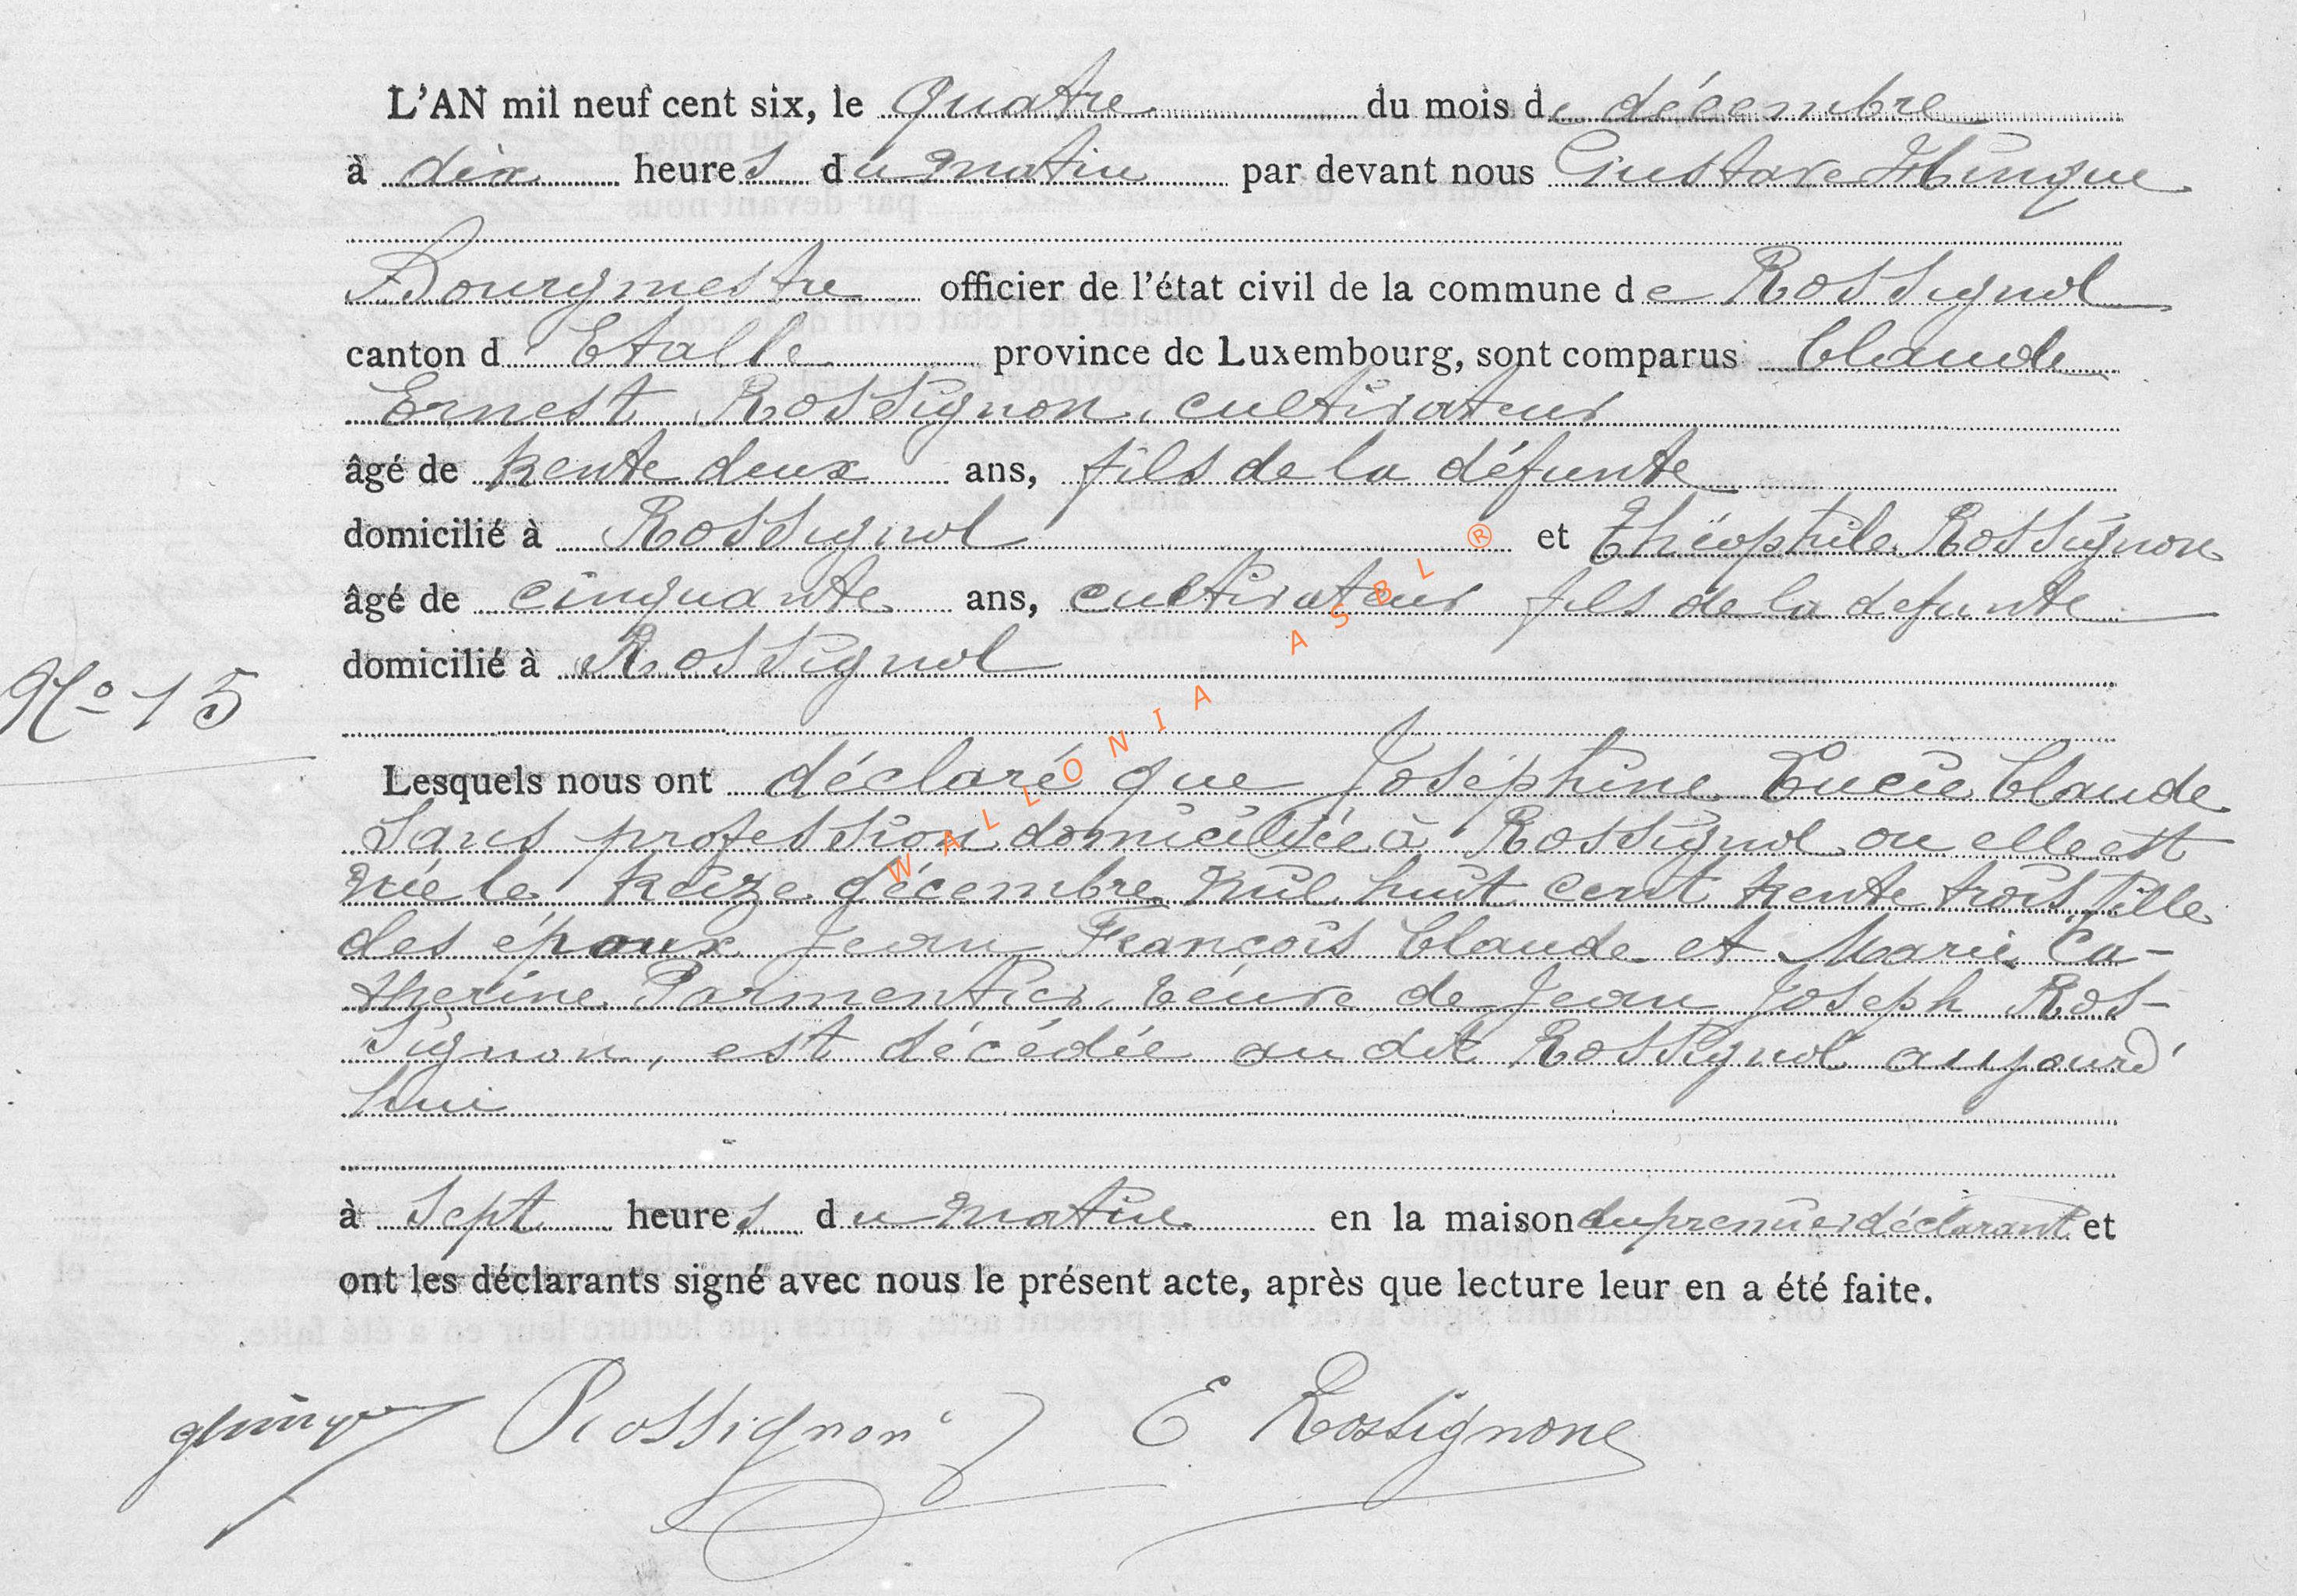 L'AN mil neuf cent six, le quatre du mois de décembre
à dix heures du matin par devant nous Gustave Hinque
Bourgmestre officier de l'état civil de la commune de Rossignol
canton d'Etalle province de Luxembourg, sont comparus Claude
Ernest Rossignon, cultivateur
âgé de trente deux ans, fils de la défunte
domicilié à Rossignol et Théophile Rossignon
âgé de cinquante ans, cultivateur fils de la defunte
domicilié à Rossignol
No 15
Lesquels nous ont déclaré que Joséphine Lucie Claude
sans profession domiciliée à Rossignol ou elle est
née le treize décembre mil huit cent trente trois fille
des époux Jean François Claude et Marie Ca-
therine Parmentier, veuve de Jean Joseph Ros-
signon, est décédée au dit Rossignol aujourd'
hui
à sept heures du matin en la maison du premier déclarant et
ont les déclarants signé avec nous le présent acte, après que lecture leur en a été faite.
Rossignon E Rossignon
WALLONIA ASBL ®